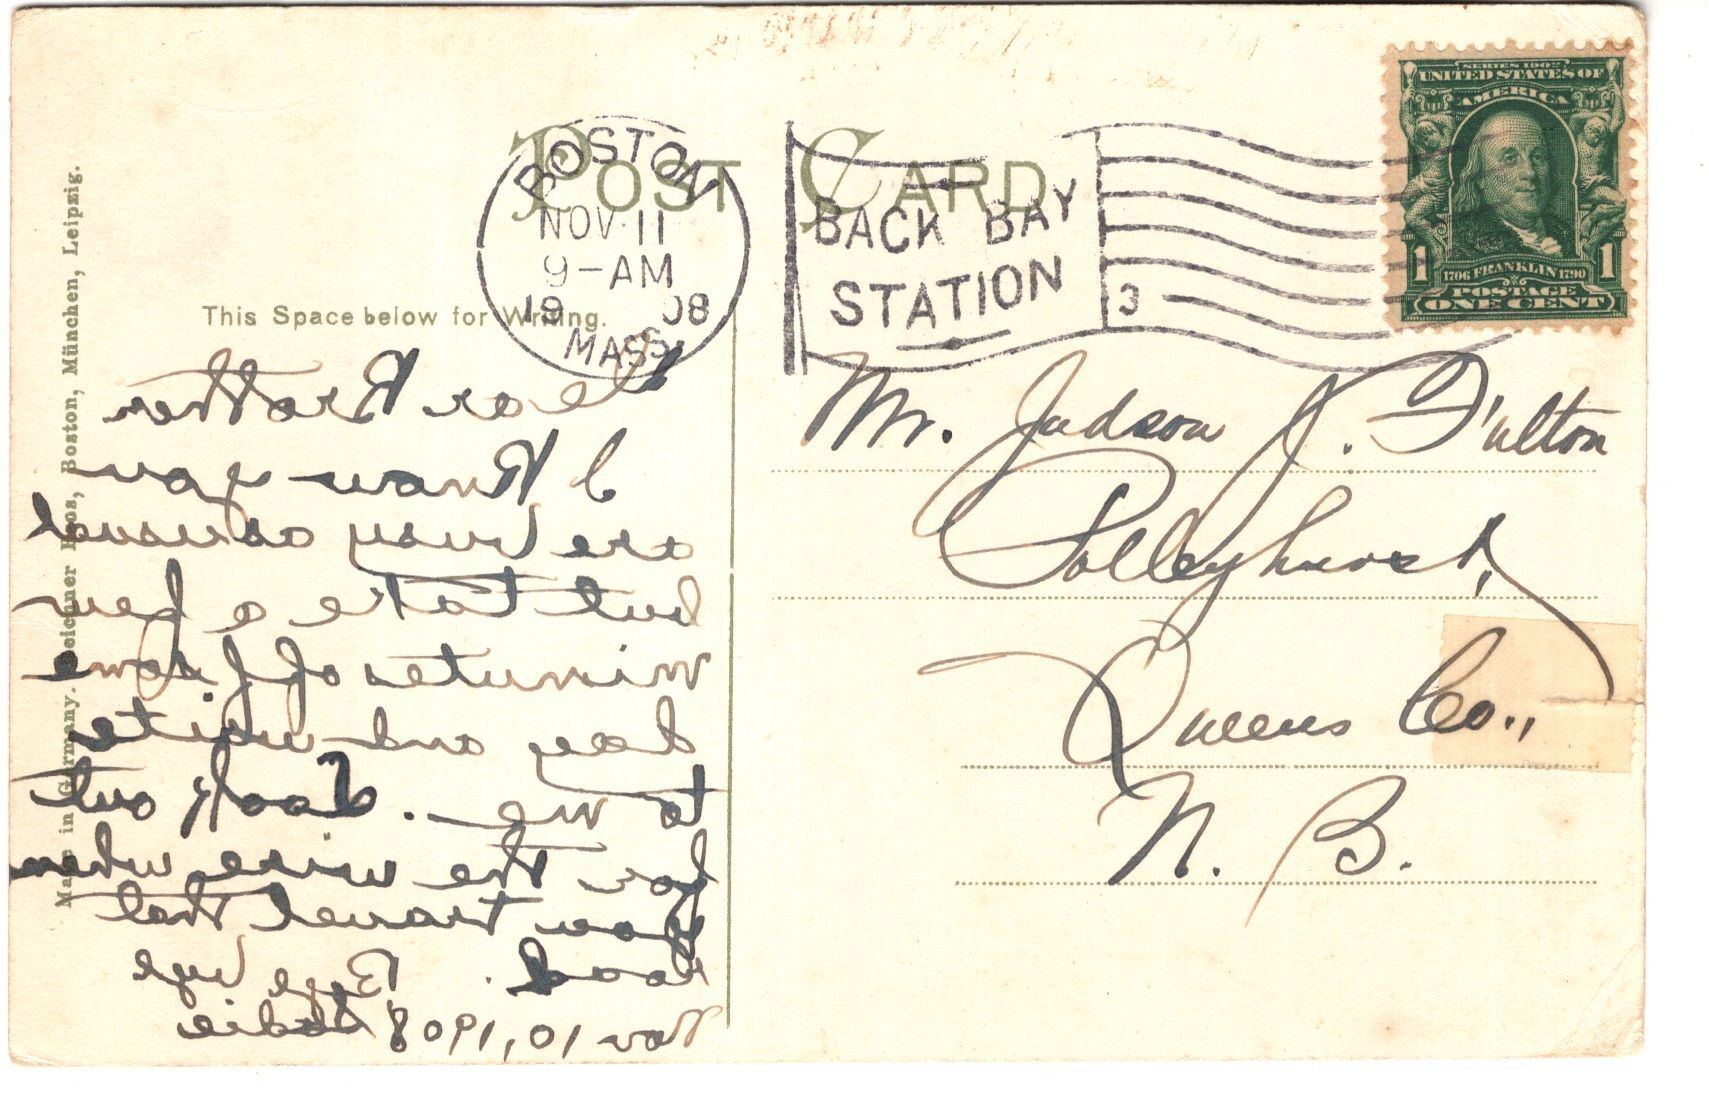 POST CARD
BOSTON
NOV 11
9-AM
1908
MASS
BACK BAY
STATION
3
SERIES 1902
UNITED STATES OF
AMERICA
1706 FRANKLIN 1790
1 1
POSTAGE
ONE CENT
This Space below for Writing.
Made in Germany. Reichner Bros, Boston, München, Leipzig.
Dear Brother
I Know you
are busy around
but take a few
minutes off some
day and write
to me. Look out
for the wire when
you travel that
road. Bye bye
Nov 10, 1908 Sadie
Mr. Judson J. Fulton
Polleyhurst,
Queens Co.,
N. B.